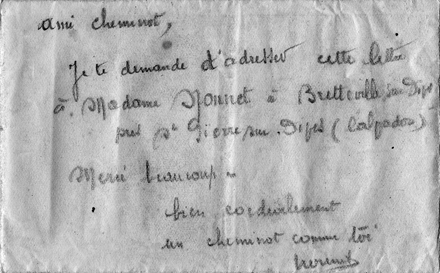 ami cheminot,
Je te demande d'adresser cette lettre
à Madame Monnet à Bretteville sur Dives
près St Pierre sur Dives (Calvados)
Merci beaucoup
bien cordialement
un cheminot comme toi